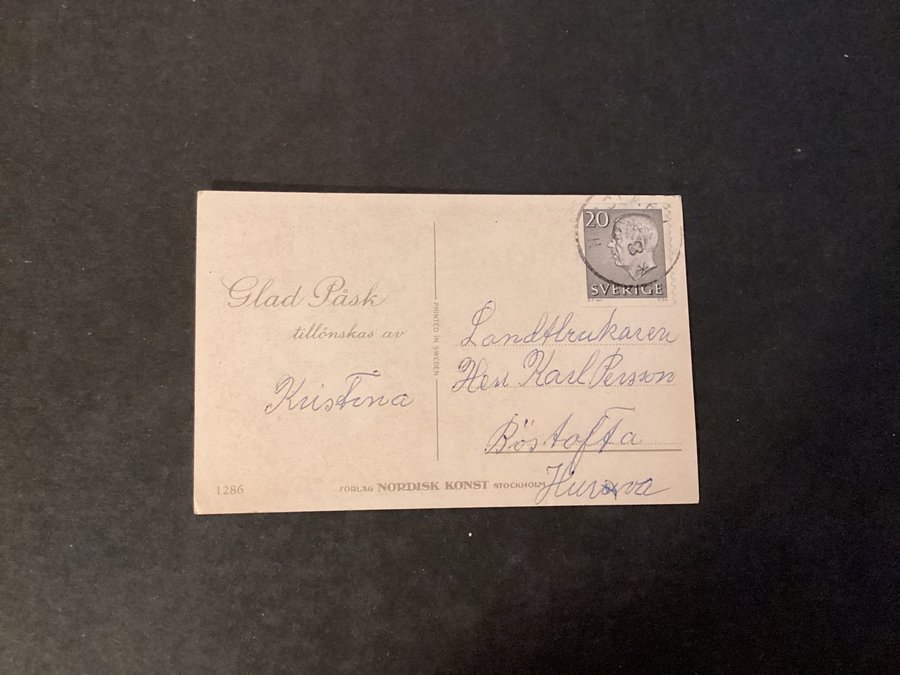 Glad Påsk
tillönskas av
Kristina
1286
PRINTED IN SWEDEN
20
SVERIGE
Landtbrukaren
Herr Karl Persson
Böstofta
Hurva
FÖRLAG NORDISK KONST STOCKHOLM